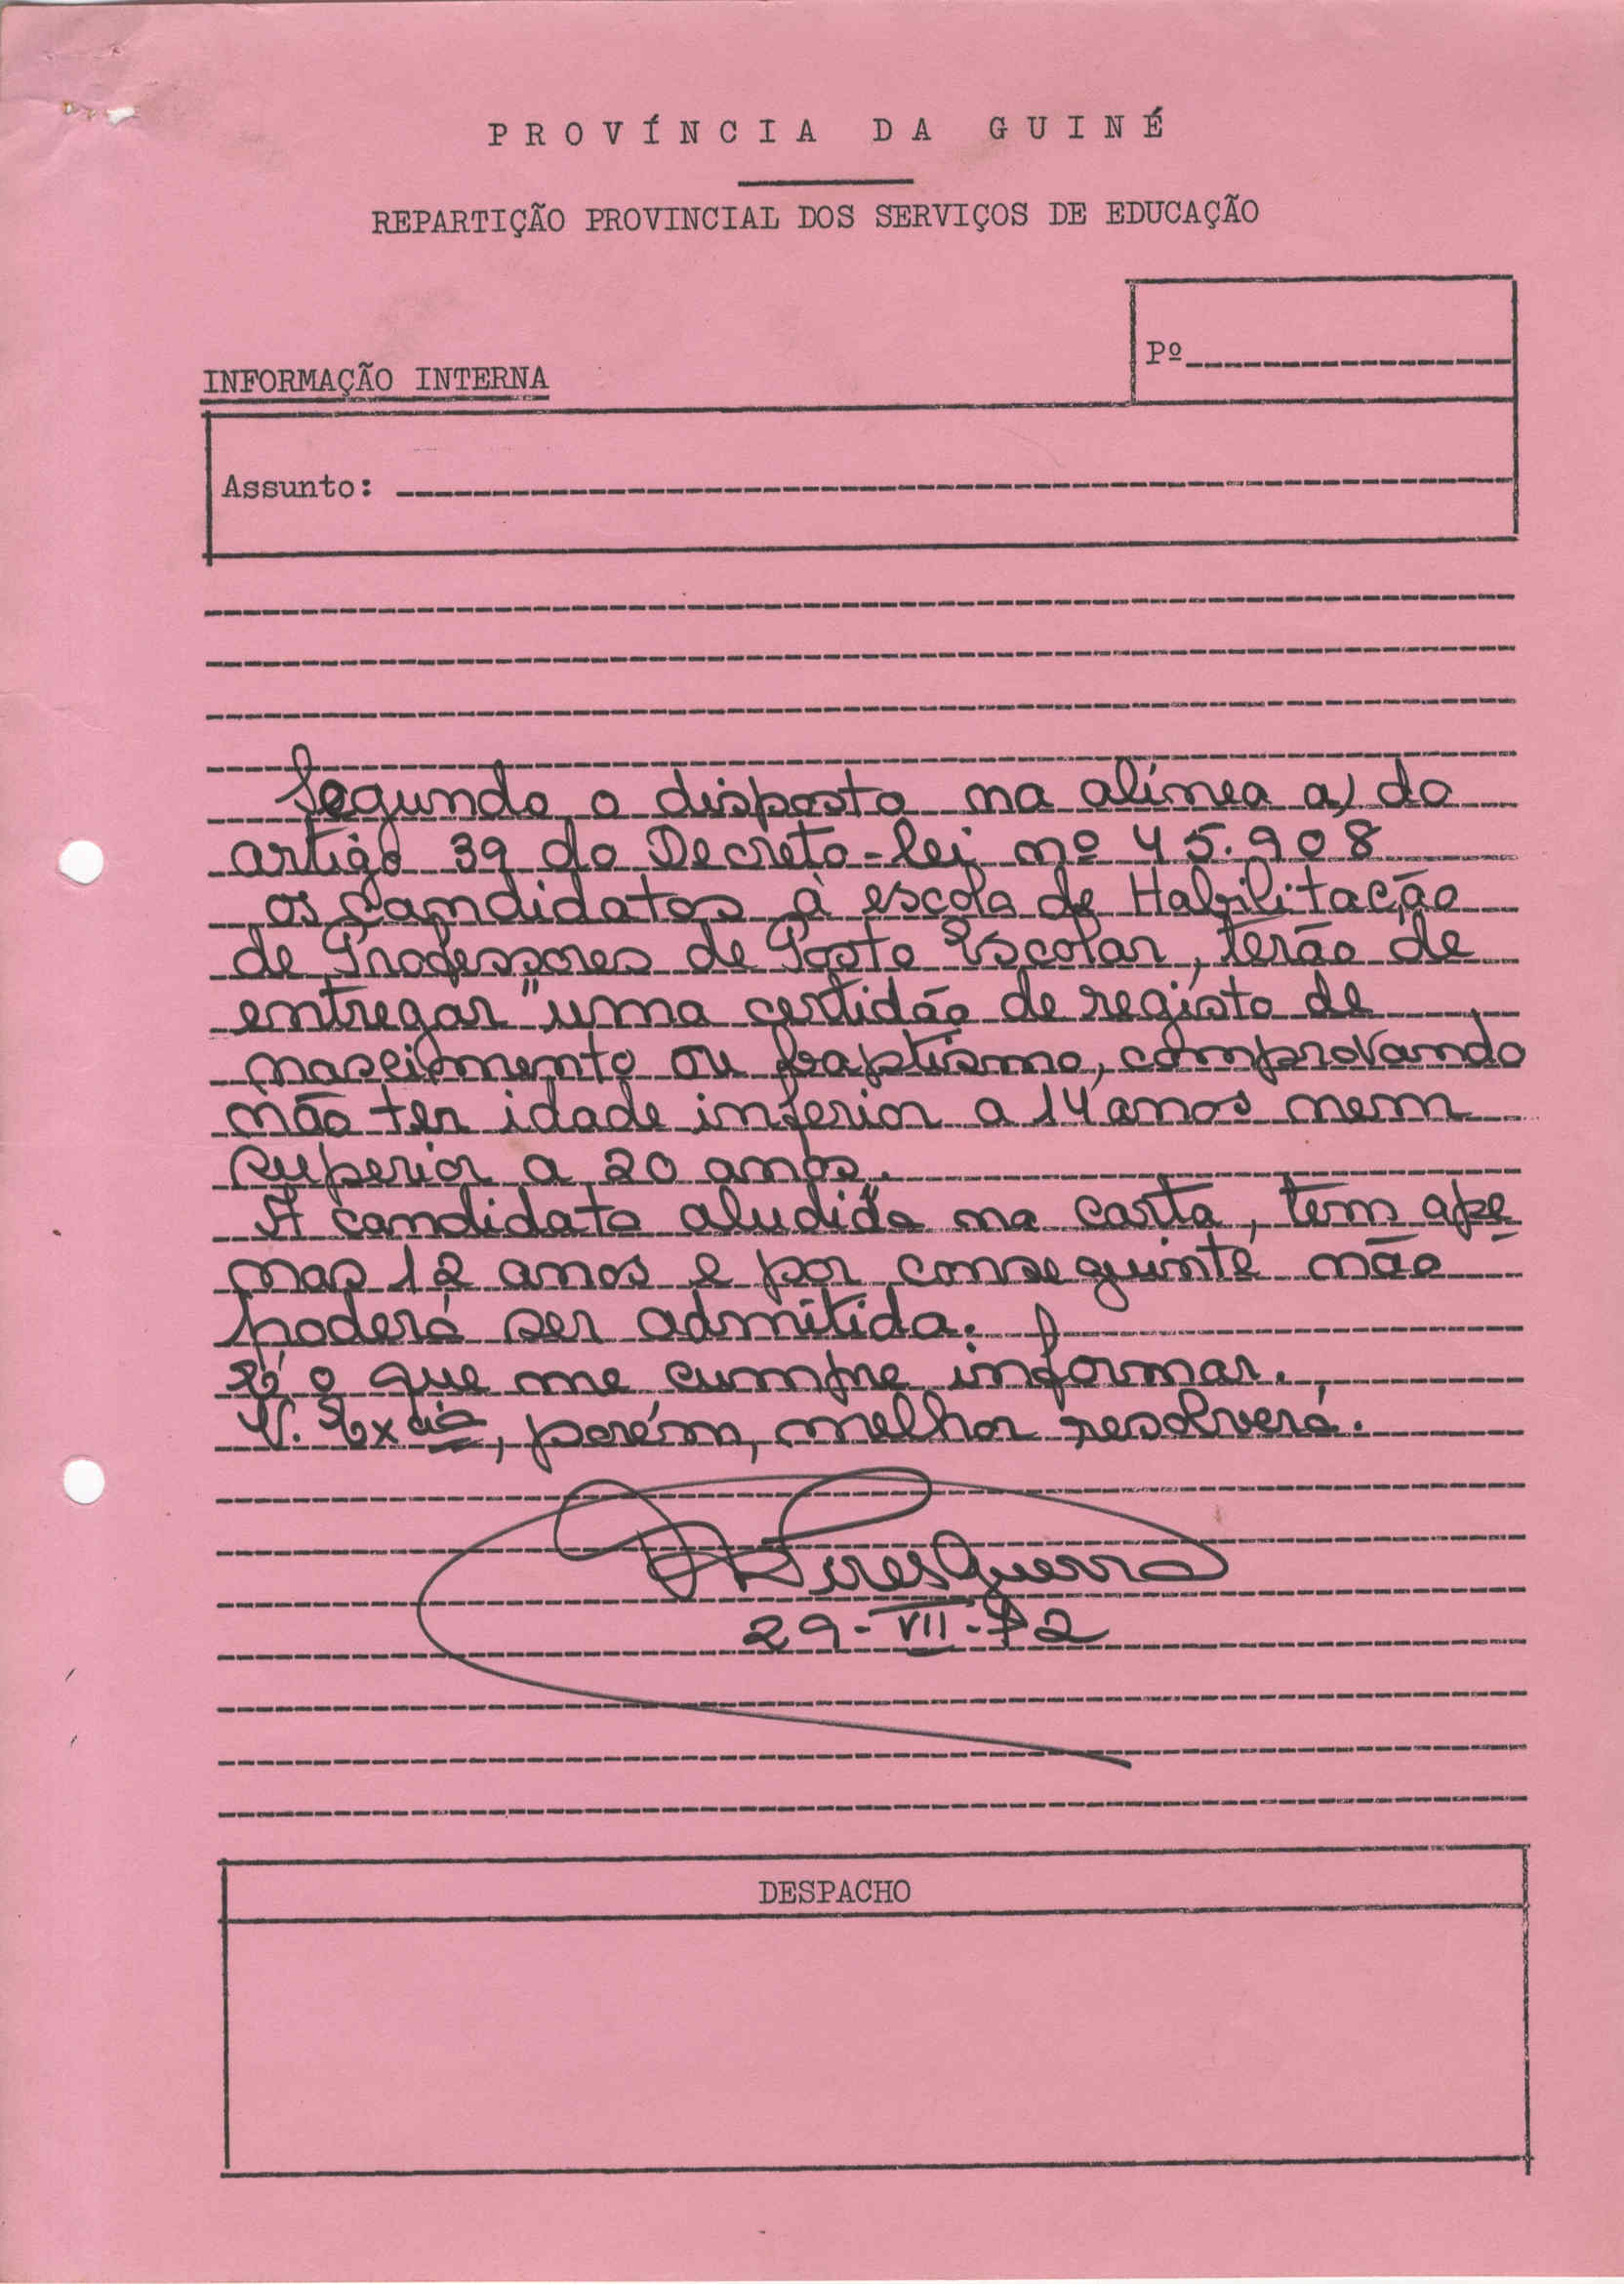 PROVÍNCIA DA GUINÉ
REPARTIÇÃO PROVINCIAL DOS SERVIÇOS DE EDUCAÇÃO
Pº
INFORMAÇÃO INTERNA
Assunto:
Segundo o disposto na alínea a) do
artigo 39 do Decreto-lei nº 45.908
os candidatos à escola de Habilitação
de Professores de Posto Escolar, terão de
entregar "uma certidão de registo de
nascimento ou baptismo, comprovando
não ter idade inferior a 14 anos nem
superior a 20 anos."
A candidata aludida na carta, tem ape
nas 12 anos e por conseguinte não
poderá ser admitida.
É o que me cumpre informar.
V. Excia, porém, melhor resolverá.
Pires Guerra
29-VII-72
DESPACHO